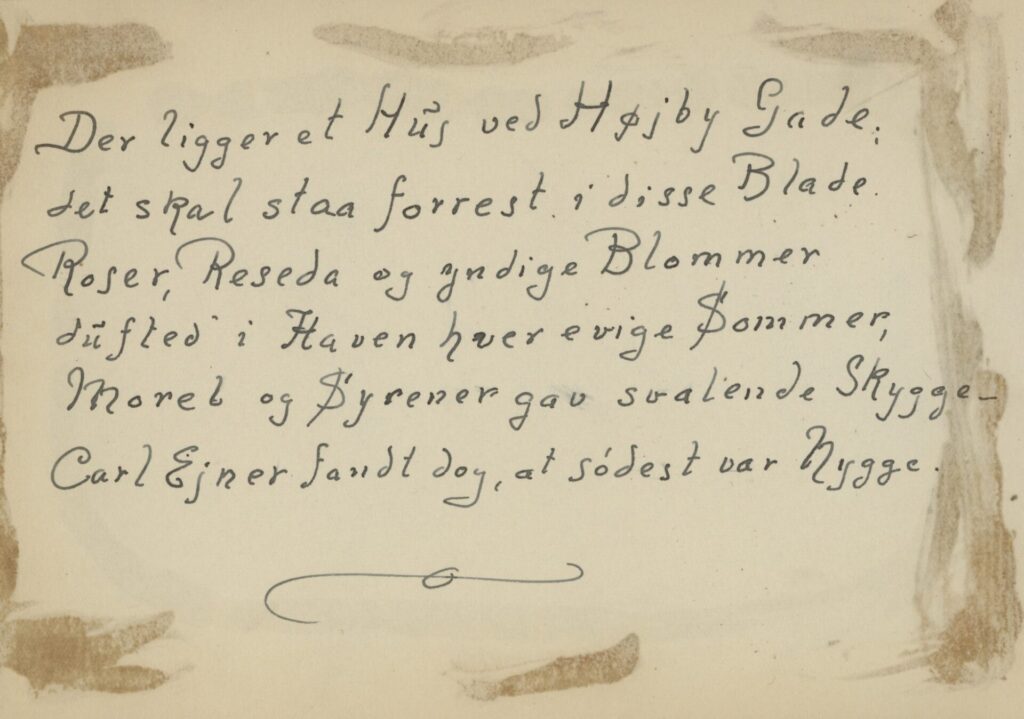 Der ligger et Hūs ved Højby Gade;
det skal staa forrest i disse Blade.
Roser, Reseda og yndige Blommer
dūfted' i Haven hver evige Sommer,
Morel og Syrener gav svalende Skygge –
Carl Ejner fandt dog, at södest var Nygge.